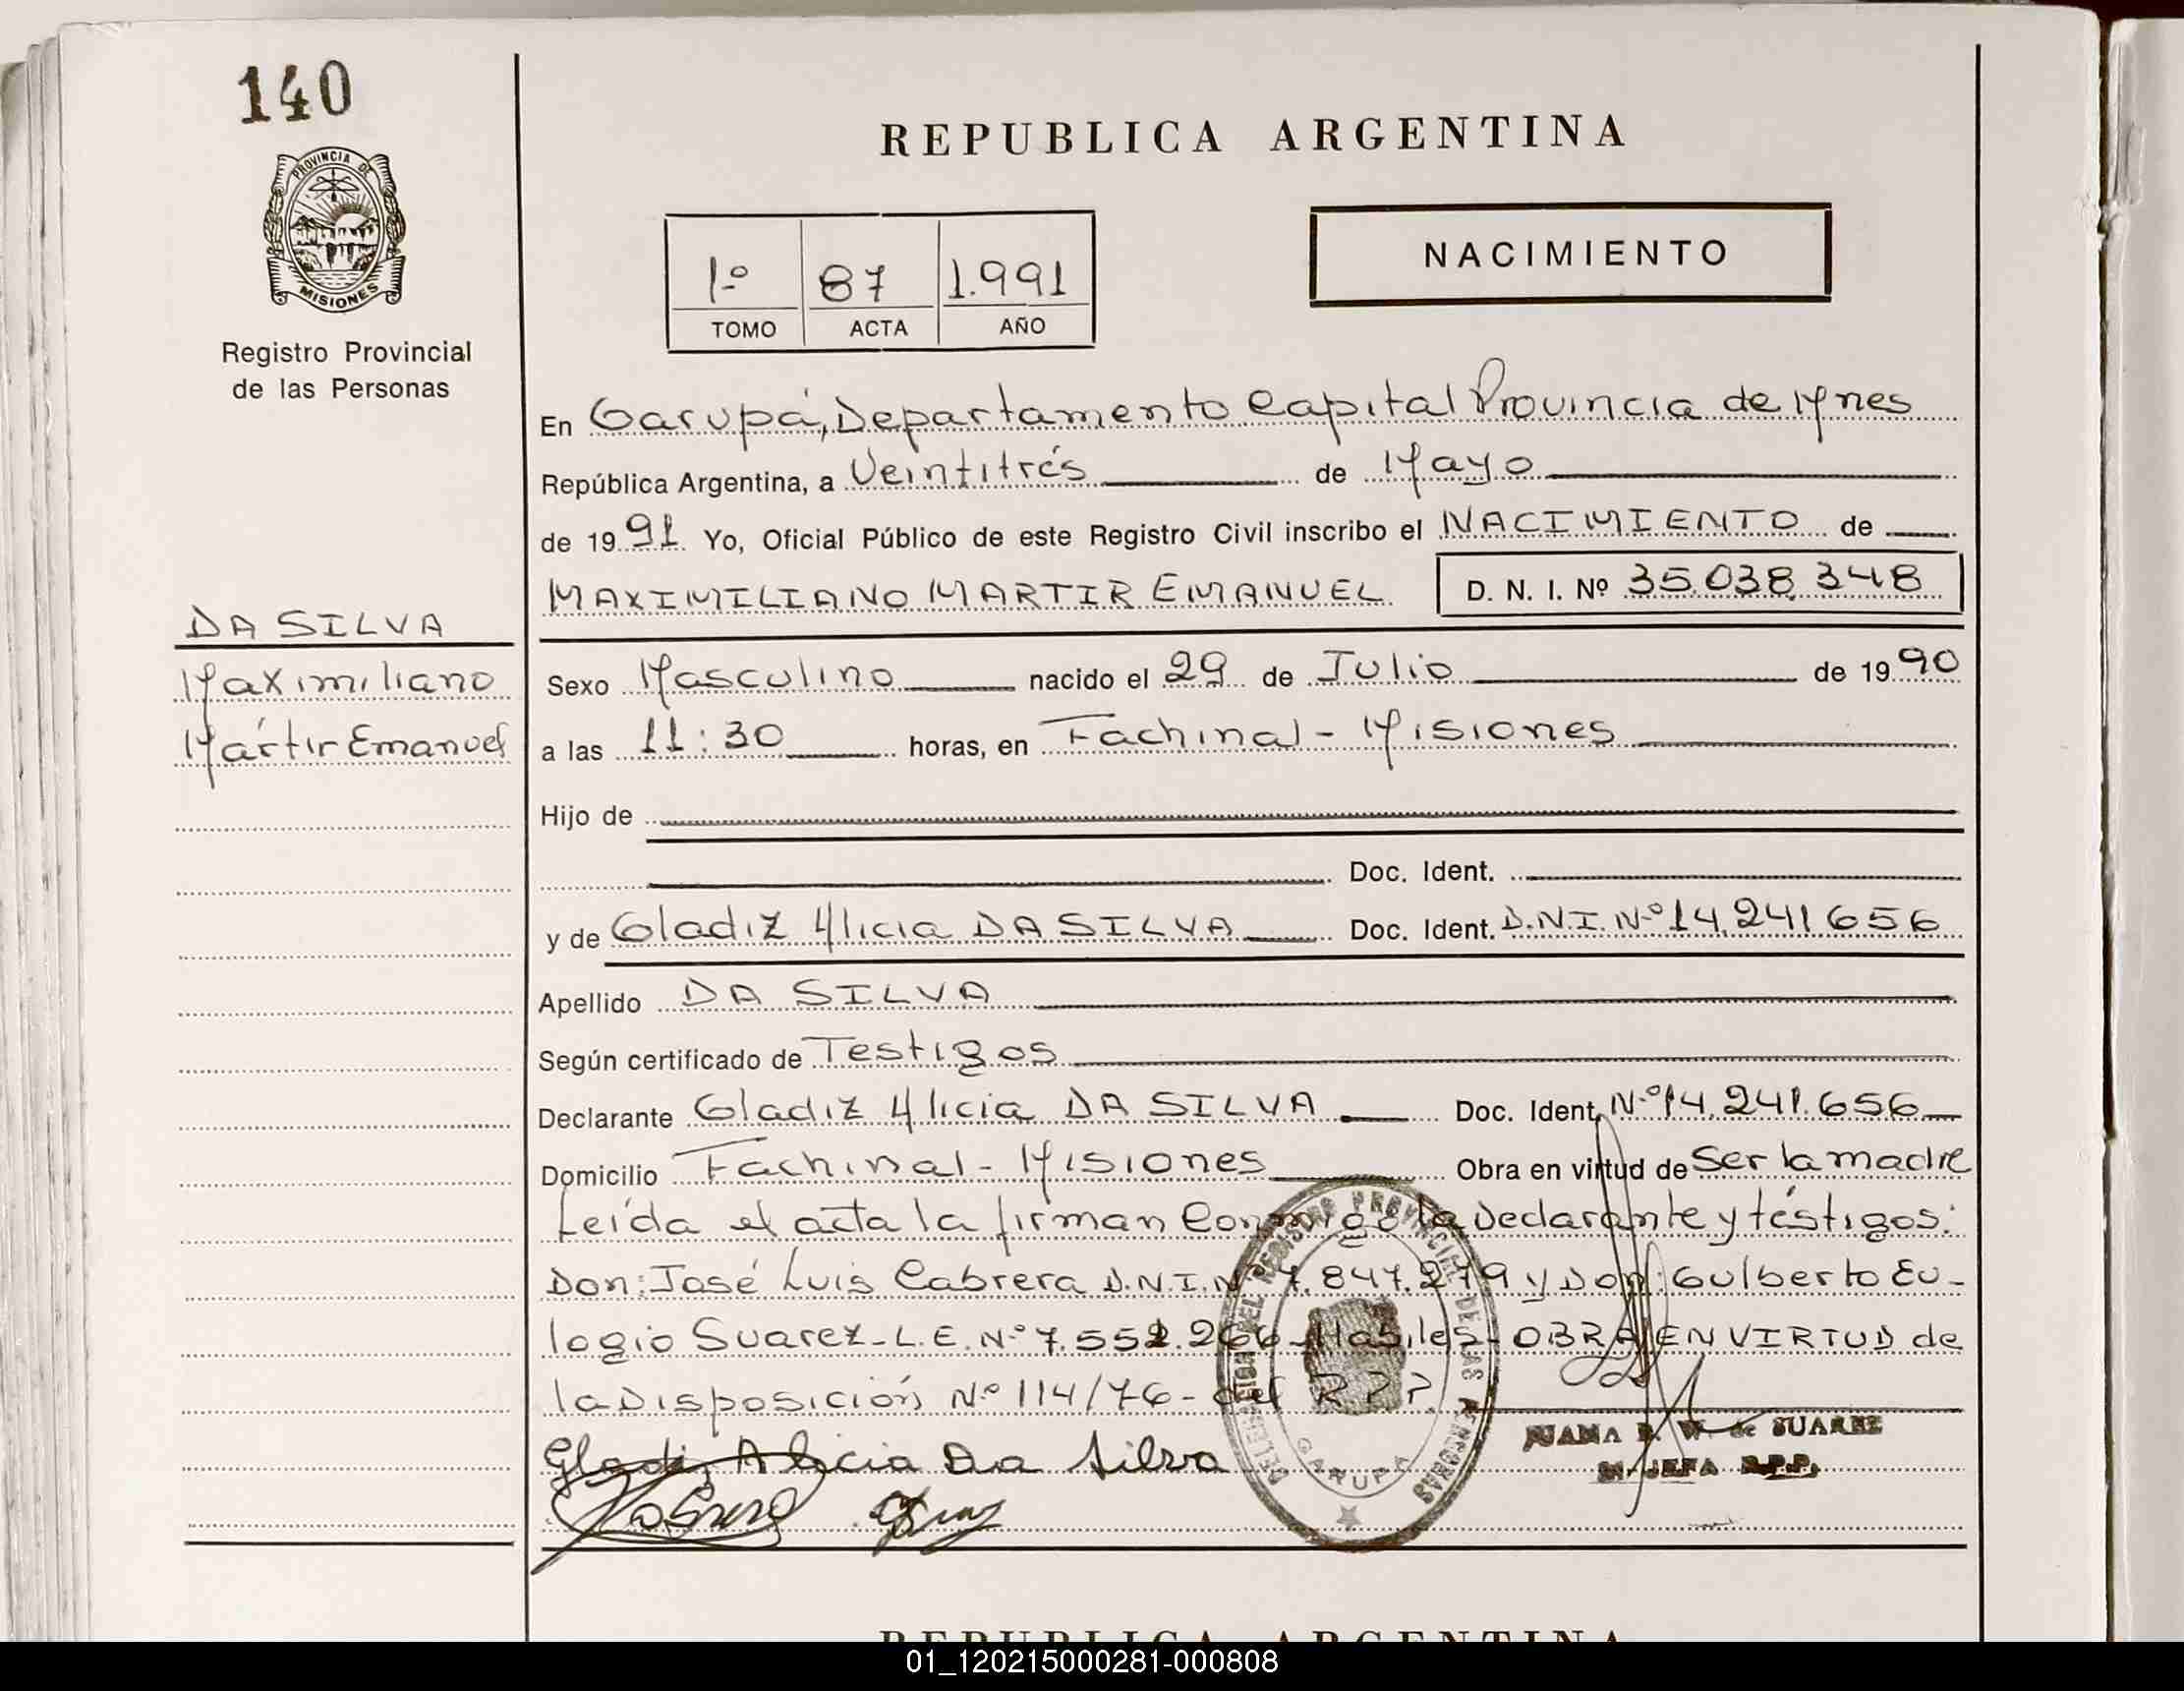 140
PROVINCIA DE
MISIONES
Registro Provincial
de las Personas
REPUBLICA ARGENTINA
1º 87 1.991
TOMO ACTA AÑO
NACIMIENTO
En Garupá, Departamento Capital Provincia de Mnes
República Argentina, a Veintitrés de Mayo
de 1991 Yo, Oficial Público de este Registro Civil inscribo el NACIMIENTO de
MAXIMILIANO MARTIR EMANUEL D. N. I. Nº 35.038.348
DA SILVA
Maximiliano
Mártir Emanuel
Sexo Masculino nacido el 29 de Julio de 1990
a las 11:30 horas, en Fachinal - Misiones
Hijo de
Doc. Ident.
y de Gladiz Alicia DA SILVA Doc. Ident. D.N.I. Nº 14.241656
Apellido DA SILVA
Según certificado de Testigos
Declarante Gladiz Alicia DA SILVA Doc. Ident. Nº 14.241.656
Domicilio Fachinal - Misiones Obra en virtud de Ser la madre
Leída el acta la firman Conmigo la Declarante y téstigos:
Don: José Luis Cabrera D.N.I. Nº 7.847.279 y Don: Gulberto Eu-
logio Suarez - L.E. Nº 7.552.266 - Habiles - OBRA EN VIRTUD de
la Disposición Nº 114/76 - del R P P.
Gladiz Alicia Da Silva
DELEGACION DEL REGISTRO PROVINCIAL DE LAS PERSONAS
GARUPA
JUANA R. W. de SUAREZ
JEFA R.P.P.
REPUBLICA ARGENTINA
01_120215000281-000808